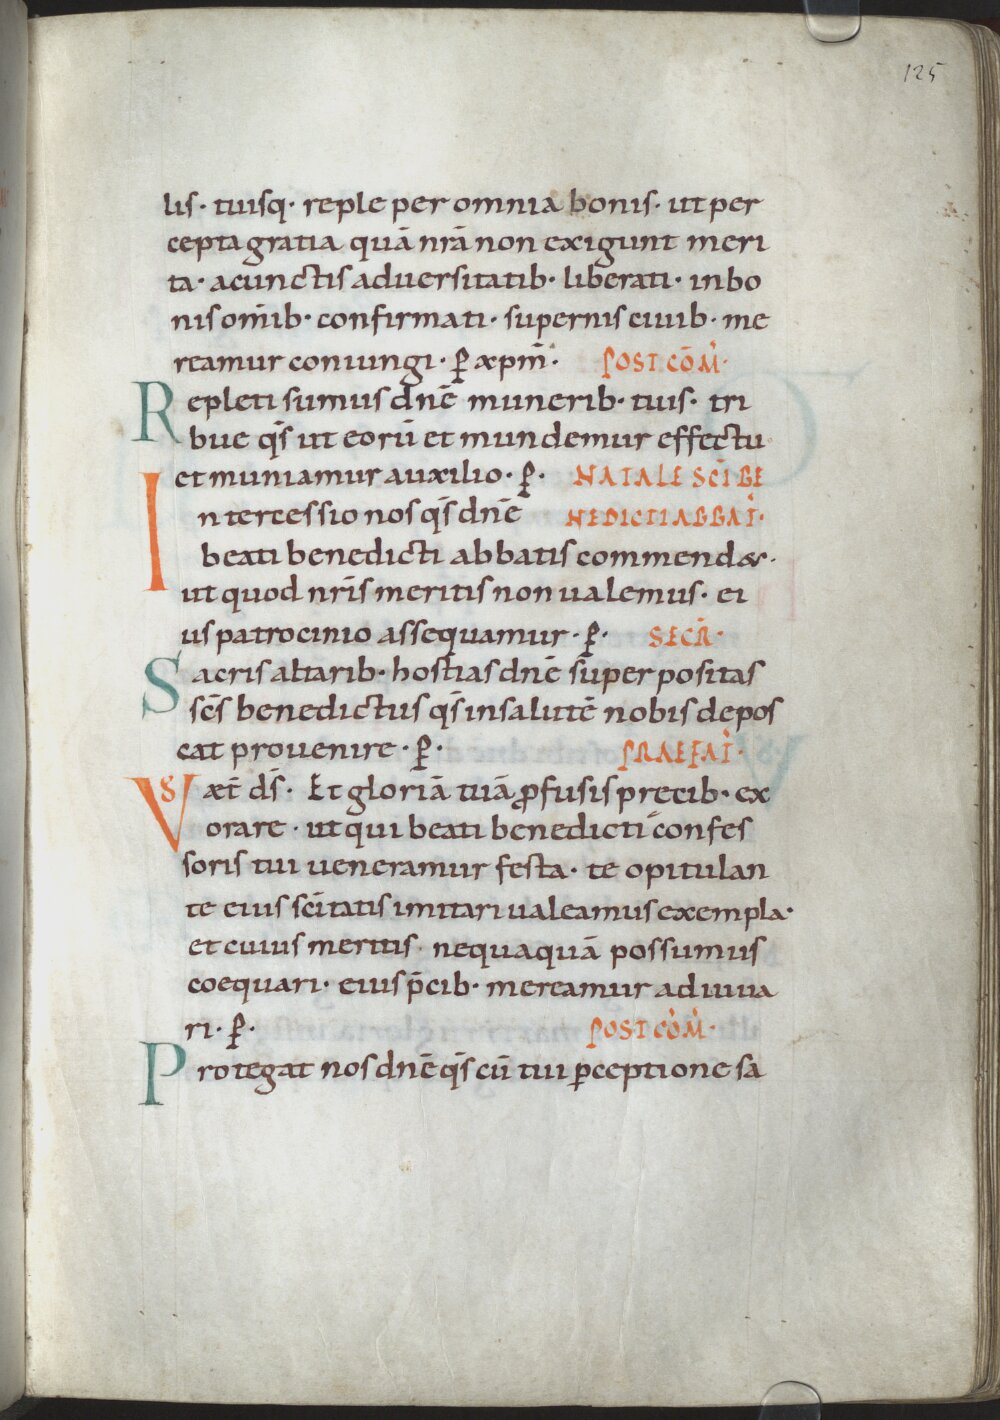 125
lis· tuisq· reple per omnia bonis· ut per
cepta gratia quā nr̄a non exigunt meri
ta· a cunctis aduersitatib· liberati· in bo
nis om̄ib· confirmati· supernis ciuib· me
reamur coniungi· ꝑ æxpm̄· POST CŌM·
Repleti sumus dn̄e munerib· tuis· tri
bue qs̄ ut eorū et mundemur effectu
et muniamur auxilio· ꝑ· NATALE SC̄I BE
Intercessio nos qs̄ dn̄e NEDICTI ABBAT̄·
beati benedicti abbatis commendæt·
ut quod nr̄is meritis non ualemus· ei
us patrocinio assequamur· ꝑ· SECR̄·
Sacris altarib· hostias dn̄e superpositas
sc̄s benedictus qs̄ in salutē nobis depos
cat prouenire· ꝑ· PRAEFAT̄·
VS æt̄ ds̄· Et gloriā tuā ꝓfusis precib· ex
orare· ut qui beati benedicti confes
soris tui ueneramur festa· te opitulan
te eius sc̄itatis imitari ualeamus exempla·
et cuius meritis· nequaquā possumus
coequari· eius p̄cib· mereamur adiuua
ri· ꝑ· POST CŌM̄·
Protegat nos dn̄e qs̄ cū tui ꝑceptione sa